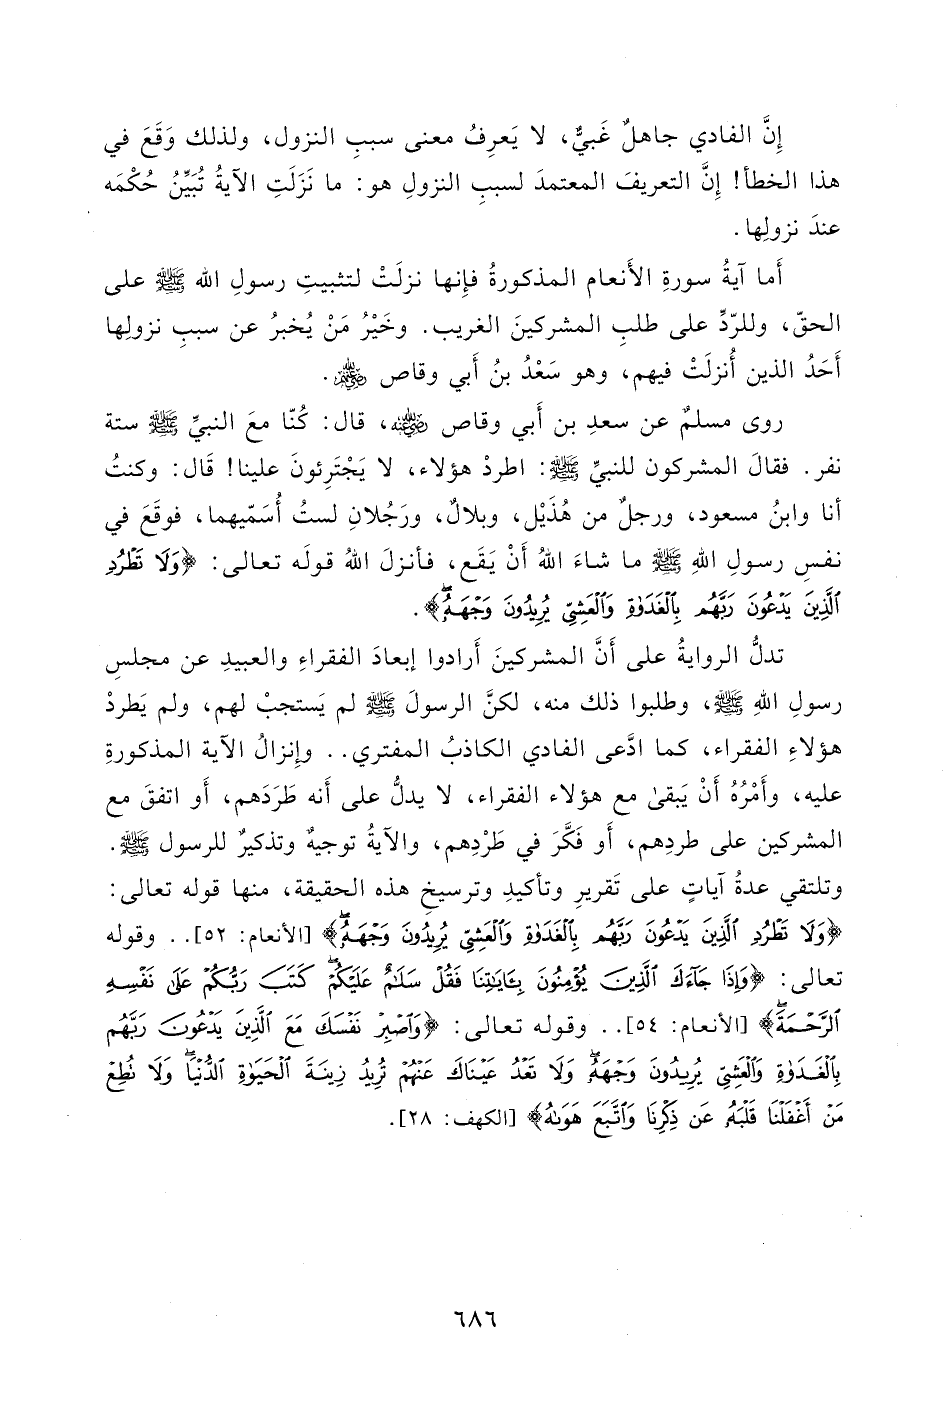 إِنَّ الفادي جاهلٌ غَبيٌّ، لا يَعرِفُ معنى سببِ النزول، ولذلك وَقَعَ في
هذا الخطأ! إِنَّ التعريفَ المعتمدَ لسببِ النزولِ هو: ما نَزَلَتِ الآيةُ تُبَيِّنُ حُكْمَه
عندَ نزولِها.
أَما آيةُ سورةِ الأَنعام المذكورةُ فإِنها نزلَتْ لتثبيتِ رسولِ الله ﷺ على
الحقّ، وللردِّ على طلبِ المشركينَ الغريب. وخَيْرُ مَنْ يُخبرُ عن سببِ نزولِها
أَحَدُ الذين أُنزلَتْ فيهم، وهو سَعْدُ بنُ أَبي وقاص رضي الله عنه.
روى مسلمٌ عن سعدِ بن أَبي وقاص رضي الله عنه، قال: كُنّا معَ النبيِّ ﷺ ستة
نفر. فقالَ المشركون للنبيِّ ﷺ: اطردْ هؤلاء، لا يَجْتَرِئونَ علينا! قَال: وكنتُ
أنا وابنُ مسعود، ورجلٌ من هُذَيْل، وبلالٌ، ورَجُلانِ لستُ أُسَمّيهما، فوقَعَ في
نفسِ رسولِ اللهِ ﷺ ما شاءَ اللهُ أَنْ يَقَع، فأنزلَ اللهُ قولَه تعالى: ﴿وَلَا تَطْرُدِ
ٱلَّذِينَ يَدْعُونَ رَبَّهُم بِٱلْغَدَوٰةِ وَٱلْعَشِىِّ يُرِيدُونَ وَجْهَهُۥ﴾.
تدلُّ الروايةُ على أَنَّ المشركينَ أَرادوا إبعادَ الفقراءِ والعبيدِ عن مجلسِ
رسولِ اللهِ ﷺ، وطلبوا ذلك منه، لكنَّ الرسولَ ﷺ لم يَستجبْ لهم، ولم يَطردْ
هؤلاءِ الفقراء، كما ادَّعى الفادي الكاذبُ المفتري.. وإِنزالُ الآية المذكورةِ
عليه، وأَمْرُهُ أَنْ يَبقىٰ مع هؤلاء الفقراء، لا يدلُّ على أَنه طَرَدَهم، أَو اتفقَ مع
المشركين على طردِهم، أَو فكَّرَ في طَرْدِهم، والآيةُ توجيهٌ وتذكيرٌ للرسول ﷺ.
وتلتقي عدةُ آياتٍ على تَقريرِ وتأكيدِ وترسيخِ هذه الحقيقة، منها قوله تعالى:
﴿وَلَا تَطْرُدِ ٱلَّذِينَ يَدْعُونَ رَبَّهُم بِٱلْغَدَوٰةِ وَٱلْعَشِىِّ يُرِيدُونَ وَجْهَهُۥ﴾ [الأنعام: ٥٢].. وقوله
تعالى: ﴿وَإِذَا جَآءَكَ ٱلَّذِينَ يُؤْمِنُونَ بِـَٔايَـٰتِنَا فَقُلْ سَلَـٰمٌ عَلَيْكُمْ كَتَبَ رَبُّكُمْ عَلَىٰ نَفْسِهِ
ٱلرَّحْمَةَ﴾ [الأنعام: ٥٤].. وقوله تعالى: ﴿وَٱصْبِرْ نَفْسَكَ مَعَ ٱلَّذِينَ يَدْعُونَ رَبَّهُم
بِٱلْغَدَوٰةِ وَٱلْعَشِىِّ يُرِيدُونَ وَجْهَهُۥ وَلَا تَعْدُ عَيْنَاكَ عَنْهُمْ تُرِيدُ زِينَةَ ٱلْحَيَوٰةِ ٱلدُّنْيَا وَلَا تُطِعْ
مَنْ أَغْفَلْنَا قَلْبَهُۥ عَن ذِكْرِنَا وَٱتَّبَعَ هَوَىٰهُ﴾ [الكهف: ٢٨].
٦٨٦